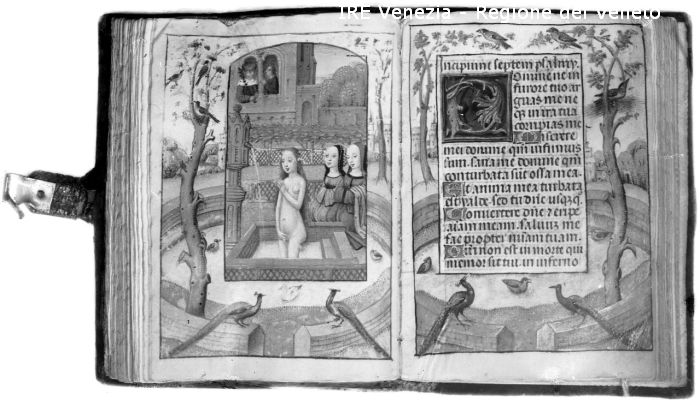 IRE Venezia - Regione del Veneto
Incipiunt septem psalmi.
Domine ne in
furore tuo ar
guas me ne
in ira tua
corripias me
Miserere
mei domine qm̃ infirmus
sum. sana me domine qm̃
conturbata sũt ossa mea.
Et anima mea turbata
est valde. sed tu dñe usq̃q̃.
Convertere dñe et eripe
aiam meam. salvum me
fac propter miam̃ tuam.
Qm̃ non est in morte qui
memor sit tui. in inferno